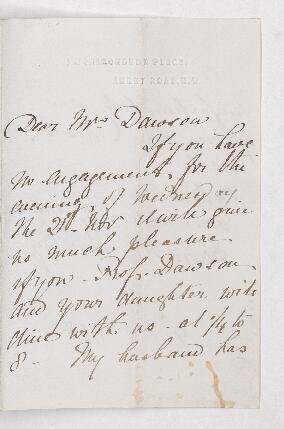 PLACE,
ROAD, N.W.
Dear Mrs Dawson
If you have
no engagement for the
evening of Wednesday
the 21st Nov it will give
us much pleasure
if you - Prof. Dawson
and your daughter will
dine with us - at 1/4 to
8 - My husband has